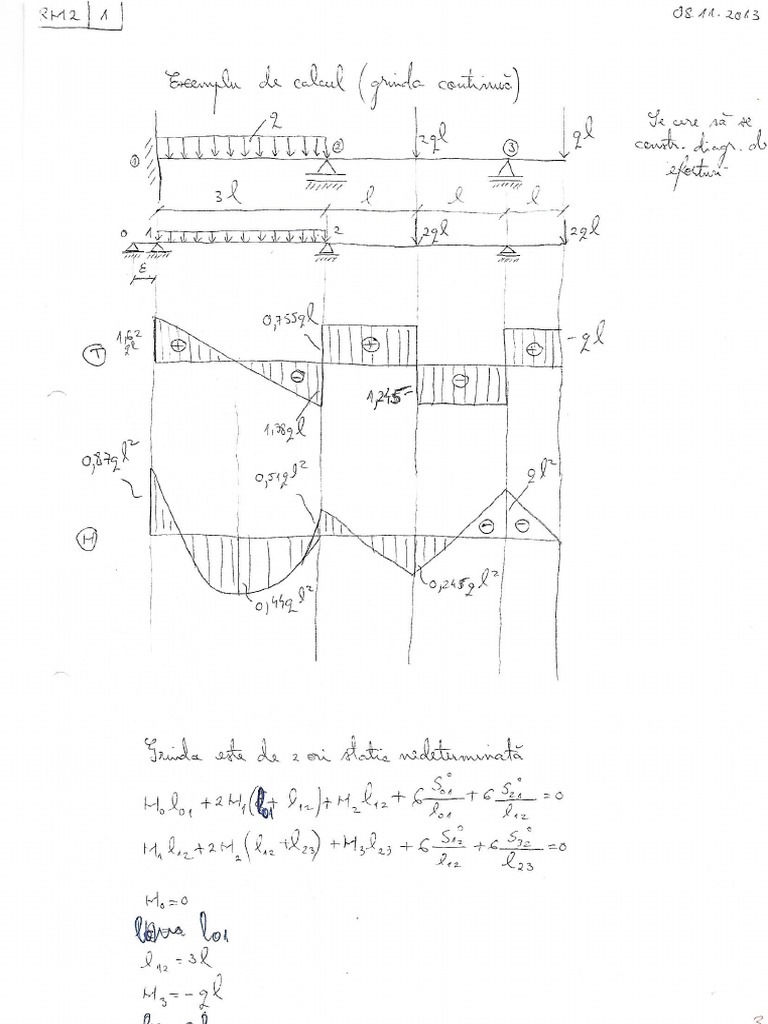 RM2 1
08.11.2013
Exemplu de calcul (grinda continuă)
Se cere să se
constr. diagr. de
eforturi
q
2ql
ql
1
2
3
3l
l
l
l
0
1
2
2ql
2ql
ε
T
1,62
0,755ql
-ql
+
-
+
-
+
1,245
1,38ql
0,87ql²
0,51ql²
ql²
M
-
-
0,44ql²
0,245ql²
Grinda este de 2 ori static nedeterminată
M₀l₀₁ + 2M₁(l₀₁ + l₁₂) + M₂l₁₂ + 6 S₀₁⁰/l₀₁ + 6 S₂₁⁰/l₁₂ = 0
M₁l₁₂ + 2M₂(l₁₂ + l₂₃) + M₃l₂₃ + 6 S₁₂⁰/l₁₂ + 6 S₃₂⁰/l₂₃ = 0
M₀ = 0
l₀₁
l₁₂ = 3l
M₃ = -ql